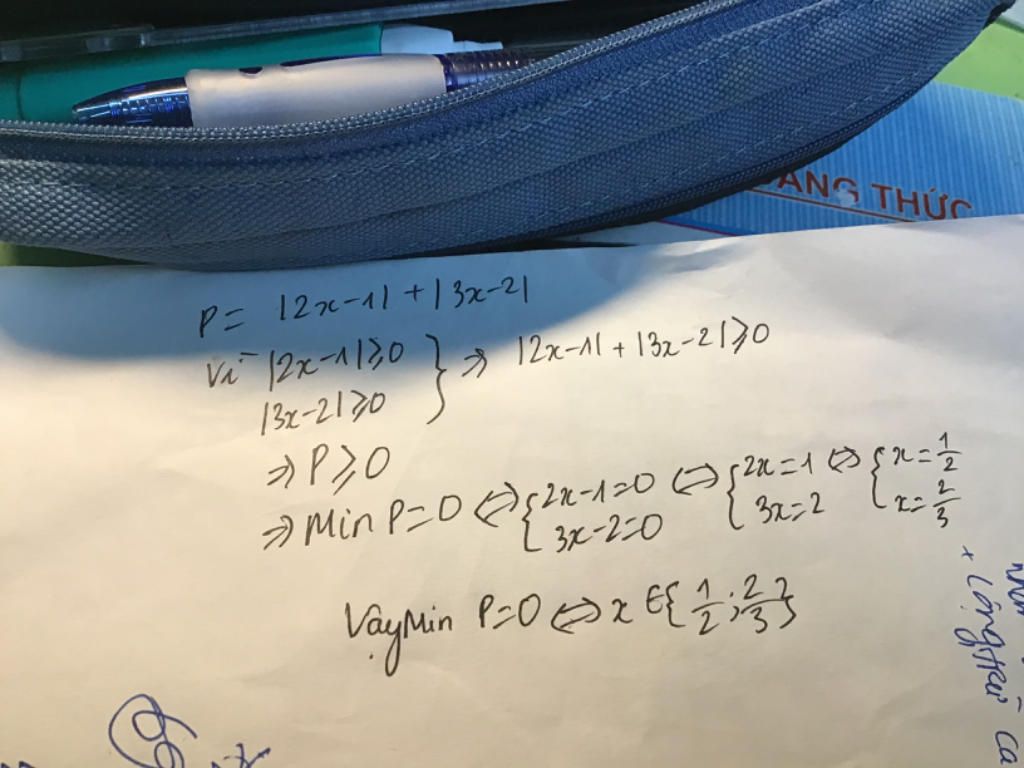 ĐẲNG THỨC
P = |2x-1| + |3x-2|
Vì |2x-1| ⩾ 0
|3x-2| ⩾ 0 } ⇒ |2x-1| + |3x-2| ⩾ 0
⇒ P ⩾ 0
⇒ Min P = 0 ⇔ { 2x-1=0 ; 3x-2=0 ⇔ { 2x=1 ; 3x=2 ⇔ { x=1/2 ; x=2/3
Vậy Min P=0 ⇔ x ∈ {1/2; 2/3}
+ Cộng trừ